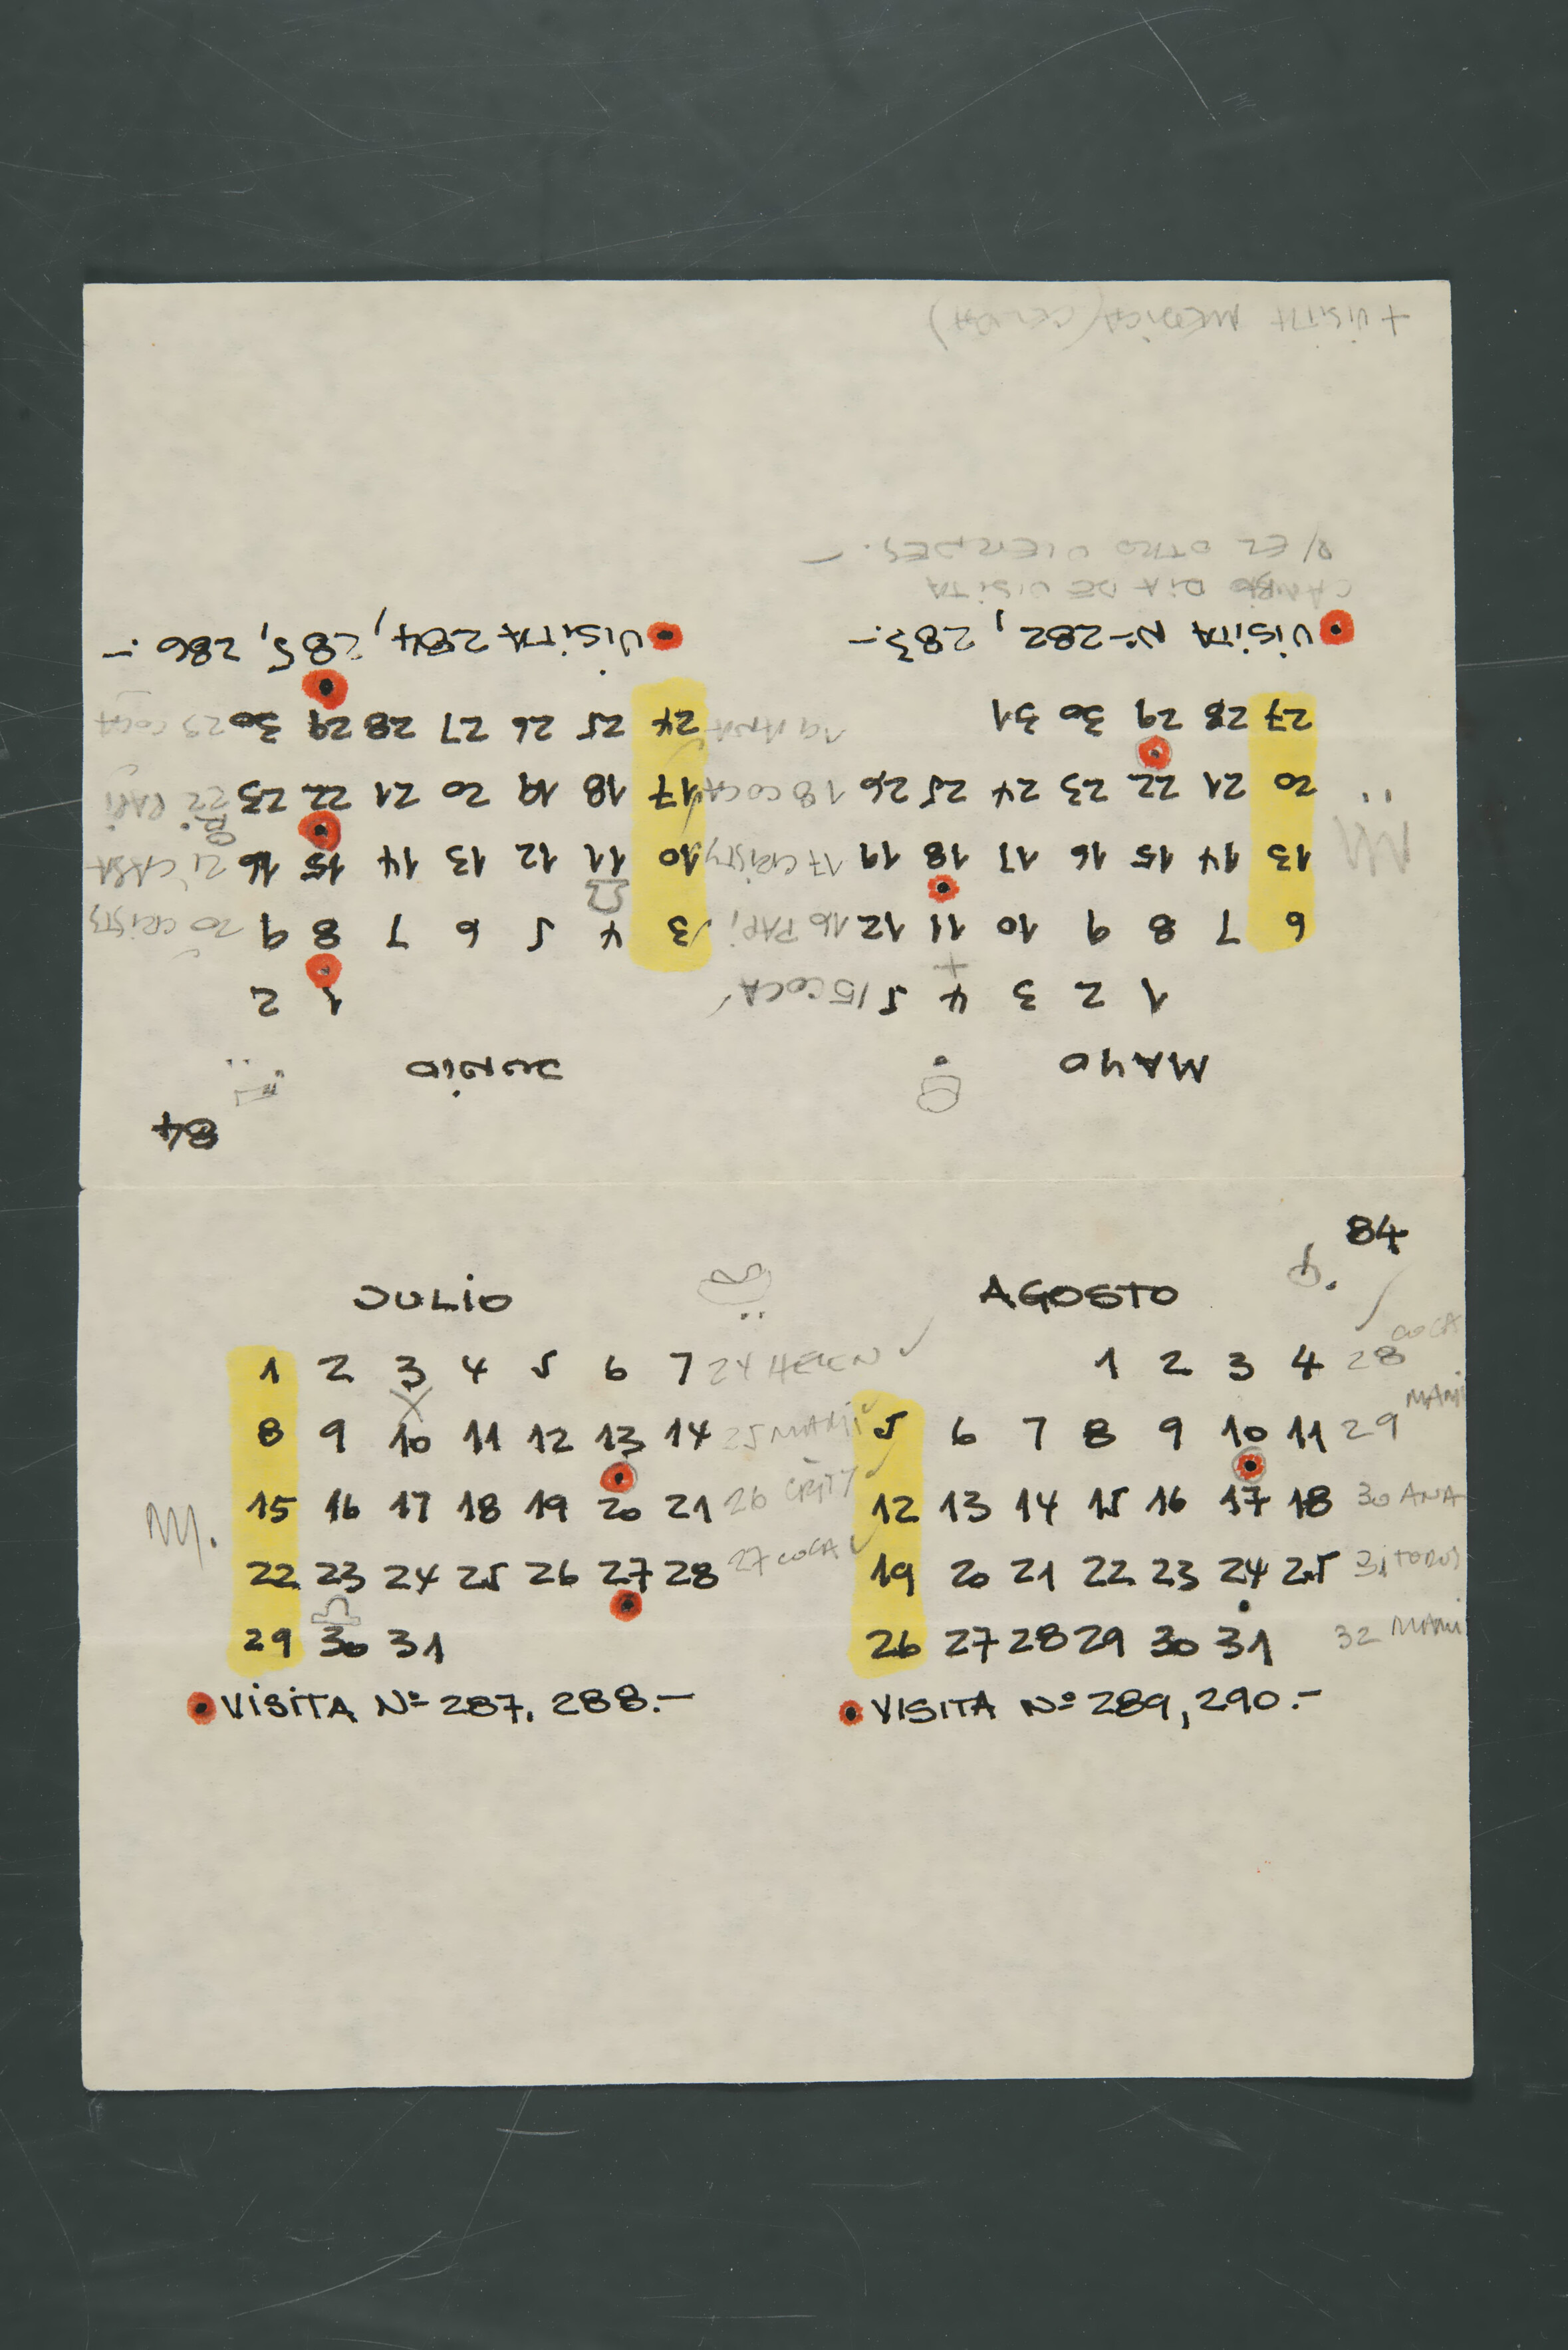 84
MAYO
JUNIO
1 2 3 4 5 15 COCA
1 2
6 7 8 9 10 11 12 16 PAPI
3 4 5 6 7 8 9 20 CRISTY
13 14 15 16 17 18 19 17 CRISTY
10 11 12 13 14 15 16 21 CASA
20 21 22 23 24 25 26 18 COCA
17 18 19 20 21 22 23 22 PAPI
27 28 29 30 31 19 ANA
24 25 26 27 28 29 30 23 COCA
VISITA Nº 282, 283.-
VISITA 284, 285, 286.-
CAMBIO DIA DE VISITA
P/ EL OTRO VIERNES.-
+ VISITA MEDICA (CELDA)
84
JULIO
AGOSTO
1 2 3 4 5 6 7 24 HELEN
1 2 3 4 28 COCA
8 9 10 11 12 13 14 25 MAMI
5 6 7 8 9 10 11 29 MAMI
15 16 17 18 19 20 21 26
12 13 14 15 16 17 18 30 ANA
22 23 24 25 26 27 28 27 COCA
19 20 21 22 23 24 25 31 TODOS
29 30 31
26 27 28 29 30 31 32 MAMI
VISITA Nº 287, 288.-
VISITA Nº 289, 290.-